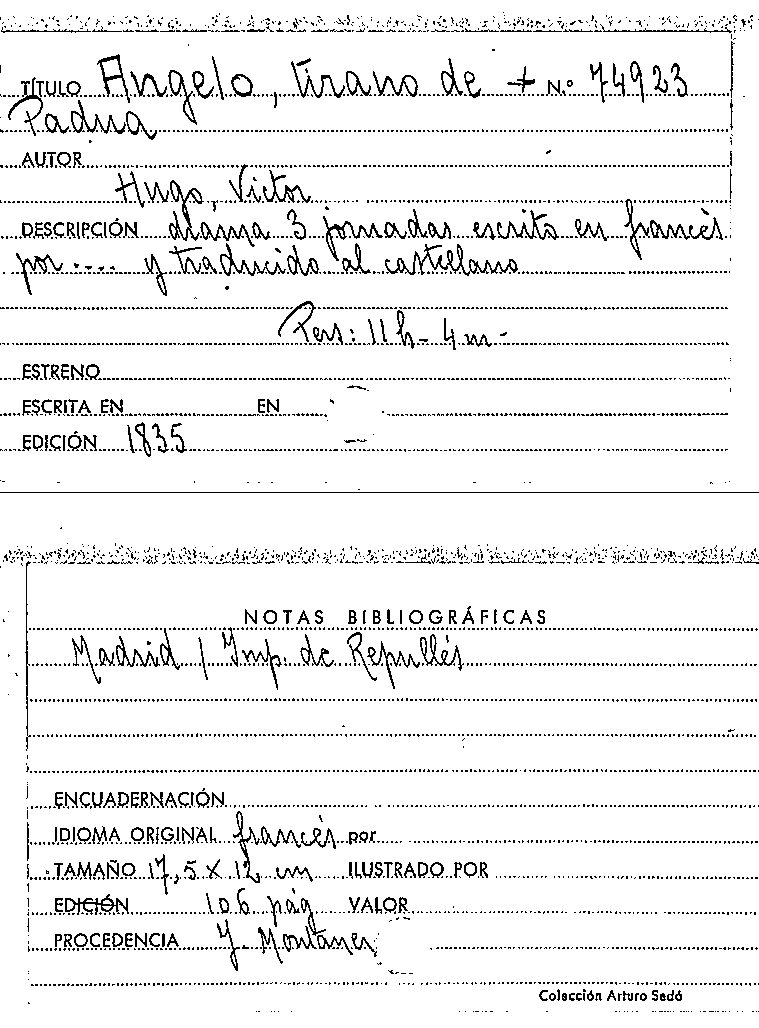 TÍTULO Angelo, tirano de + N.º 74923
Padua
AUTOR
Hugo, Victor
DESCRIPCIÓN drama 3 jornadas escrito en francès
por .... y traducido al castellano
Pers: 11 h - 4 m -
ESTRENO
ESCRITA EN EN
EDICIÓN 1835
NOTAS BIBLIOGRÁFICAS
Madrid / Imp. de Repullés
ENCUADERNACIÓN
IDIOMA ORIGINAL francés por
TAMAÑO 17,5 X 12 cm ILUSTRADO POR
EDICIÓN 106 pág VALOR
PROCEDENCIA J. Montaner
Colección Arturo Sedó